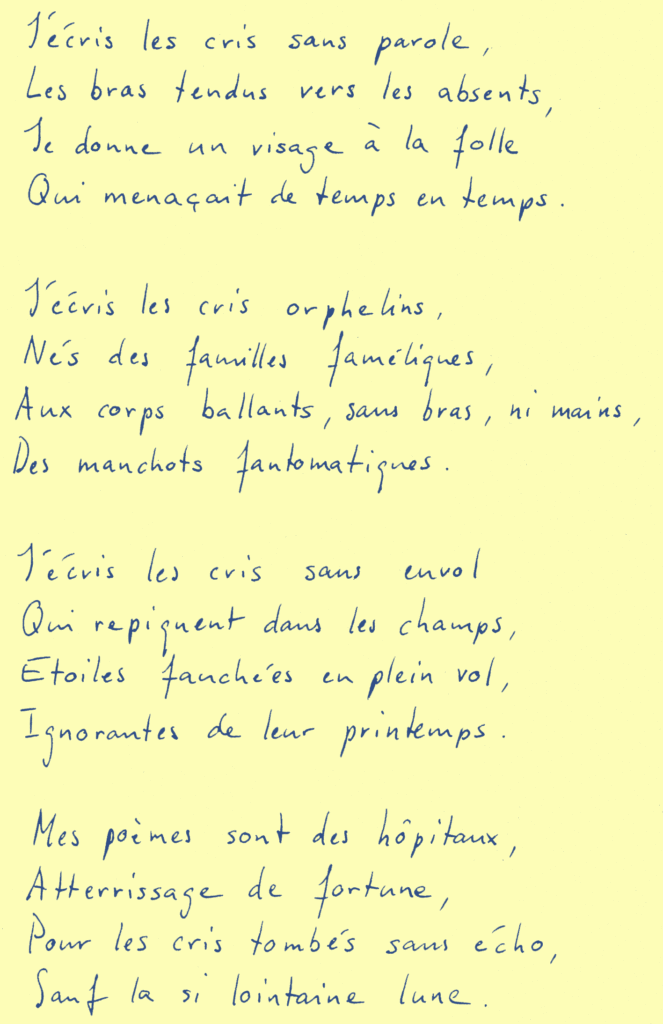 J'écris les cris sans parole,
Les bras tendus vers les absents,
Je donne un visage à la folle
Qui menaçait de temps en temps.
J'écris les cris orphelins,
Nés des familles faméliques,
Aux corps ballants, sans bras, ni mains,
Des manchots fantomatiques.
J'écris les cris sans envol
Qui repiquent dans les champs,
Etoiles fauchées en plein vol,
Ignorantes de leur printemps.
Mes poèmes sont des hôpitaux,
Atterrissage de fortune,
Pour les cris tombés sans écho,
Sauf la si lointaine lune.